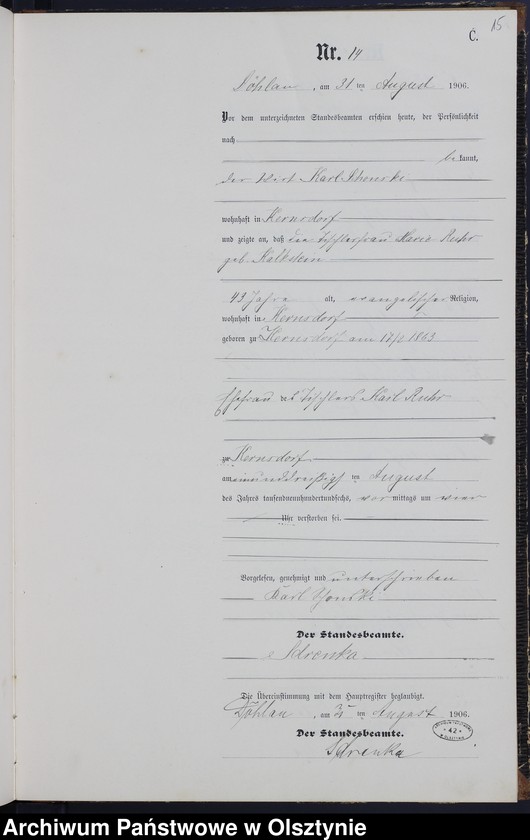 15
C.
Nr. 14
Döhlau, am 31 ten August 1906.
Vor dem unterzeichneten Standesbeamten erschien heute, der Persönlichkeit
nach
bekannt,
der Wirt Karl
wohnhaft in Kernsdorf
und zeigte an, daß die Tischlerfrau Marie Ruhr
geb. Kalkstein
43 Jahre alt, evangelischer Religion,
wohnhaft in Kernsdorf
geboren zu Kernsdorf am 1863
Ehefrau des Tischlers Karl Ruhr
zu Kernsdorf
am einunddreißigsten August
des Jahrs tausendneunhundertundsechs, vormittags um vier
Uhr verstorben sei.
Vorgelesen, genehmigt und unterschrieben
Karl
Der Standesbeamte.
Sdrenka
Die Übereinstimmung mit dem Hauptregister beglaubigt.
Döhlau, am 31 ten August 1906.
Der Standesbeamte.
Sdrenka
42
Archiwum Państwowe w Olsztynie